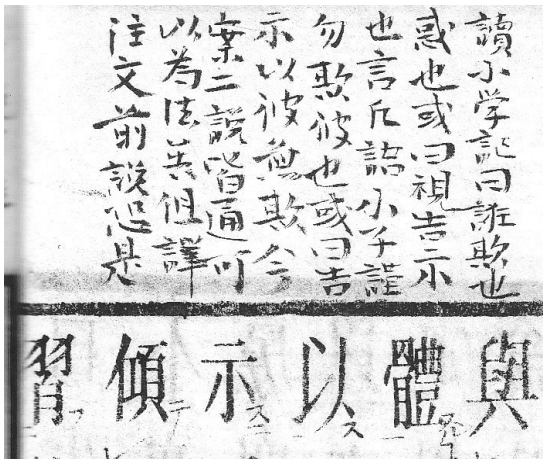 讀小学記曰誑欺也
惑也或曰視告示
也言凡語小子謹
勿欺彼也或曰告
示以彼無欺今
案二說皆通可
以為法矣但詳
注文前說恐是
與
體
以ス
示スニ
傾テ
習フ